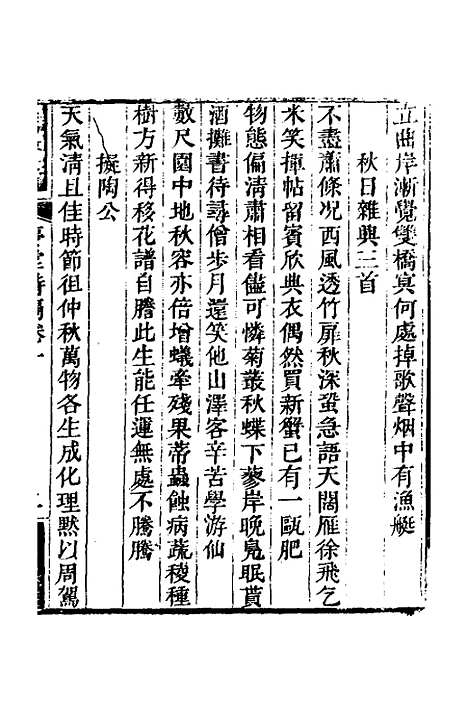 五曲岸漸覺雙橋寘何處掉歌聲烟中有漁艇
秋日雜興三首
不盡蕭條况西風透竹扉秋深蛩急語天闊雁徐飛乞
米笑揮帖留賓欣典衣偶然買新蟹已有一甌肥
物態偏清肅相看儘可憐菊叢秋蝶下蓼岸晚鳧眠貰
酒攤書待尋僧步月還笑他山澤客辛苦學游仙
數尺園中地秋容亦倍增蟻牽殘果蒂蟲蝕病蔬稜種
樹方新得移花譜自謄此生能任運無處不騰騰
擬陶公
天氣清且佳時節徂仲秋萬物各生成化理黙以周駕